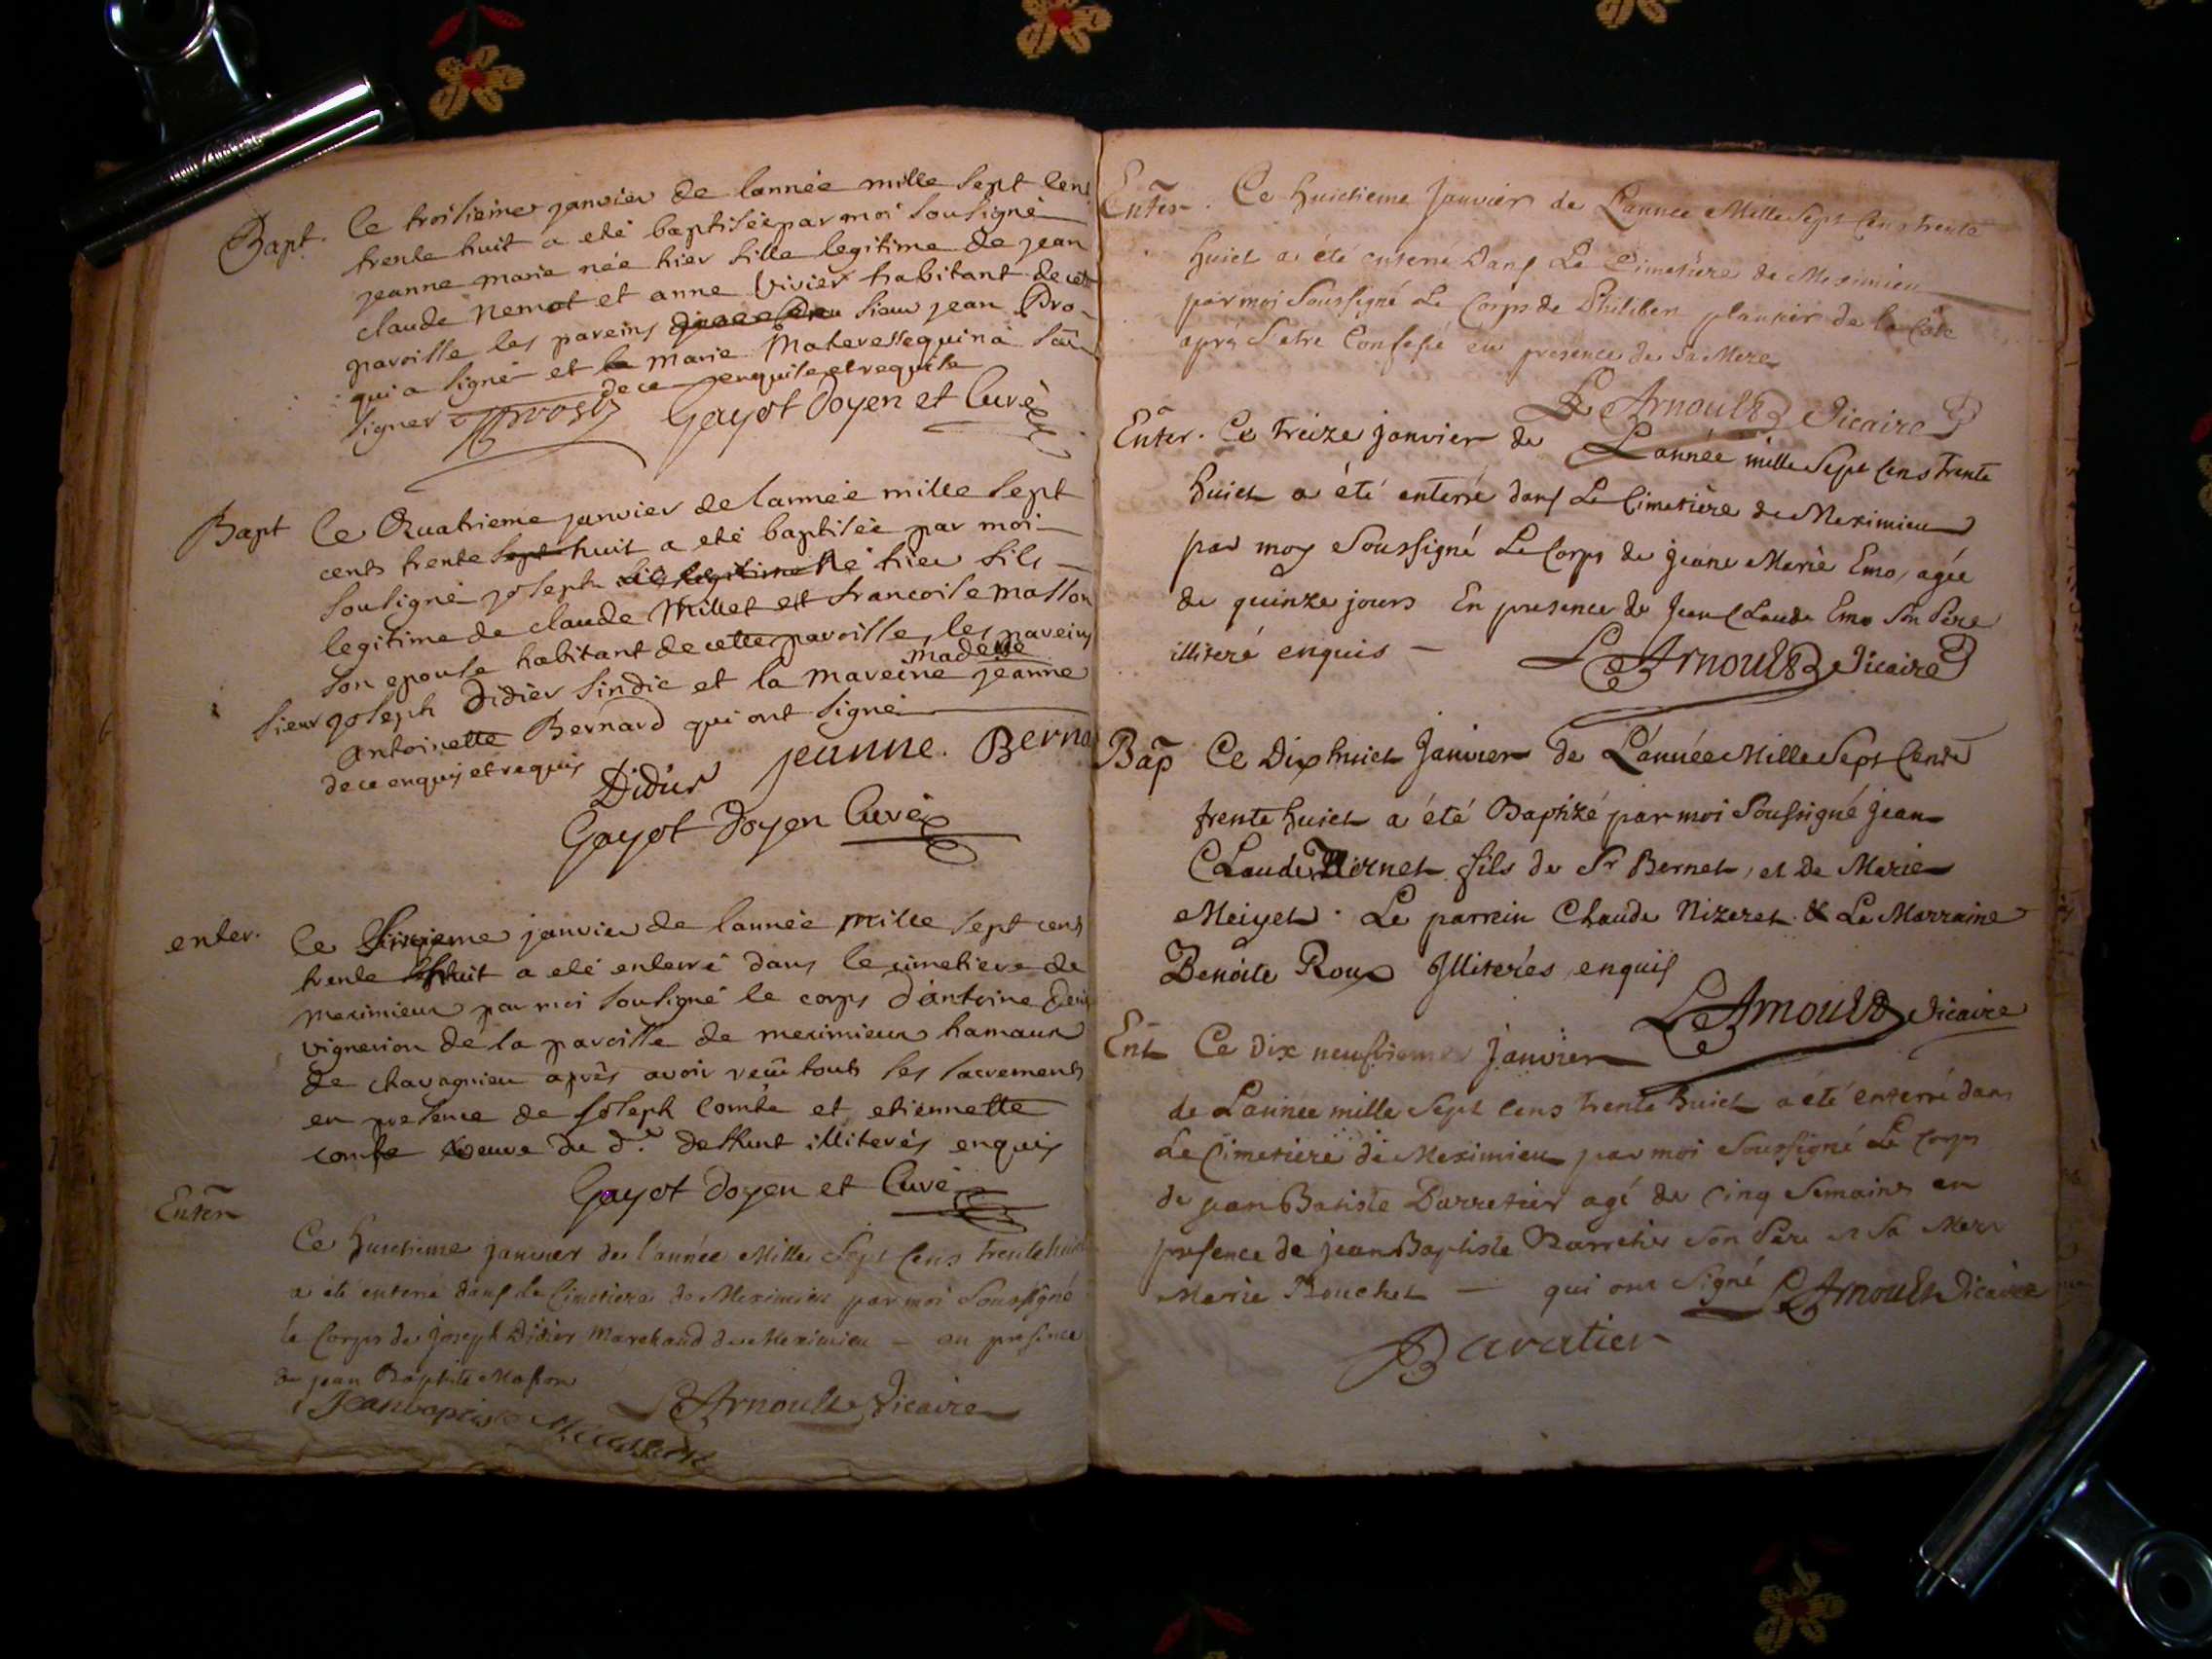 Bapt. le troisieme janvier de lannée mille sept cens
trente huit a eté baptisée par moi sousigné
jeanne marie née hier fille legitime de jean
claude nemot et anne Vivier habitant de cette
paroisse les pareins sieur jean Pro-
qui a signé et la marie Materesse qui n'a sçu
signer de ce enquise et requise
Gayot doyen et Curé
Bapt le Quatrieme janvier de lannée mille sept
cents trente sept huit a eté baptisée par moi
sousigné joseph fils legitime Né hier fils
legitime de claude Millet et francoise masson
son epouse habitant de cette paroisse, les pareins
madelle
sieur joseph Didier sindic et la mareine jeanne
antoinette Bernard qui ont signé
de ce enquis et requis
Didier jeanne. Berna
Gayot doyen Curé
enter. le janvier de lannée mille sept cens
trente huit a eté enterré dans le cimetiere de
meximieux par moi sousigné le corps d'antoine
vigneron de la paroisse de meximieux hamaux
de chavagnieu aprés avoir reçu touts les sacrements
en presence de joseph comte et etiennette
comte veuve du d.t deffunt illiterés enquis
Gayot doyen et Curé
Enter
Ce huictieme janvier de l'année Mille Sept Cens trente huict
a été enterré dans le Cimetiere de Meximieu par moi Soussigné
le Corps de joseph Didier Marchand de Meximieu — en presence
de jean Baptiste Masson
Jean baptiste Masson LeArnoult Vicaire
Enter. Ce huictieme Janvier de L'annee Mille Sept Cens trente
huict a été enterré Dans Le Cimetiere de Meximieu
par moi Soussigné Le Corps de Philibert de la Côte
aprés S'etre Confessé en presence de sa Mere
LeArnoult Vicaire
Enter. Ce treize janvier de L'année mille Sept Cens trente
huict a été enterré dans Le Cimetière de Meximieu
par moy Soussigné Le Corps de jeane Marie Emo, agée
de quinze jours En presence de jean Claude Emo Son Père
illiteré enquis — LeArnoult Vicaire
Bap Ce Dix huict Janvier de L'année Mille Sept Cents
trente huict a été Baptizé par moi Soussigné jean
Claude Bernet fils de Sr Bernet, et De Marie
Meiget. Le parrein Claude Nizeret & La Marraine
Benoite Roux Illiterés enquis
LeArnoult Vicaire
Ent Ce Dix neufvieme janvier
de L'année mille Sept Cens trente huict a été enterré dans
Le Cimetiere de Meximieu par moi Soussigné Le Corps
de jean Batiste Barretier agé de Cinq Semaines en
presence de jean Baptiste Barretier Son Père et Sa Mere
Marie Bouchet — qui ont Signé LeArnoult Vicaire
Baratier